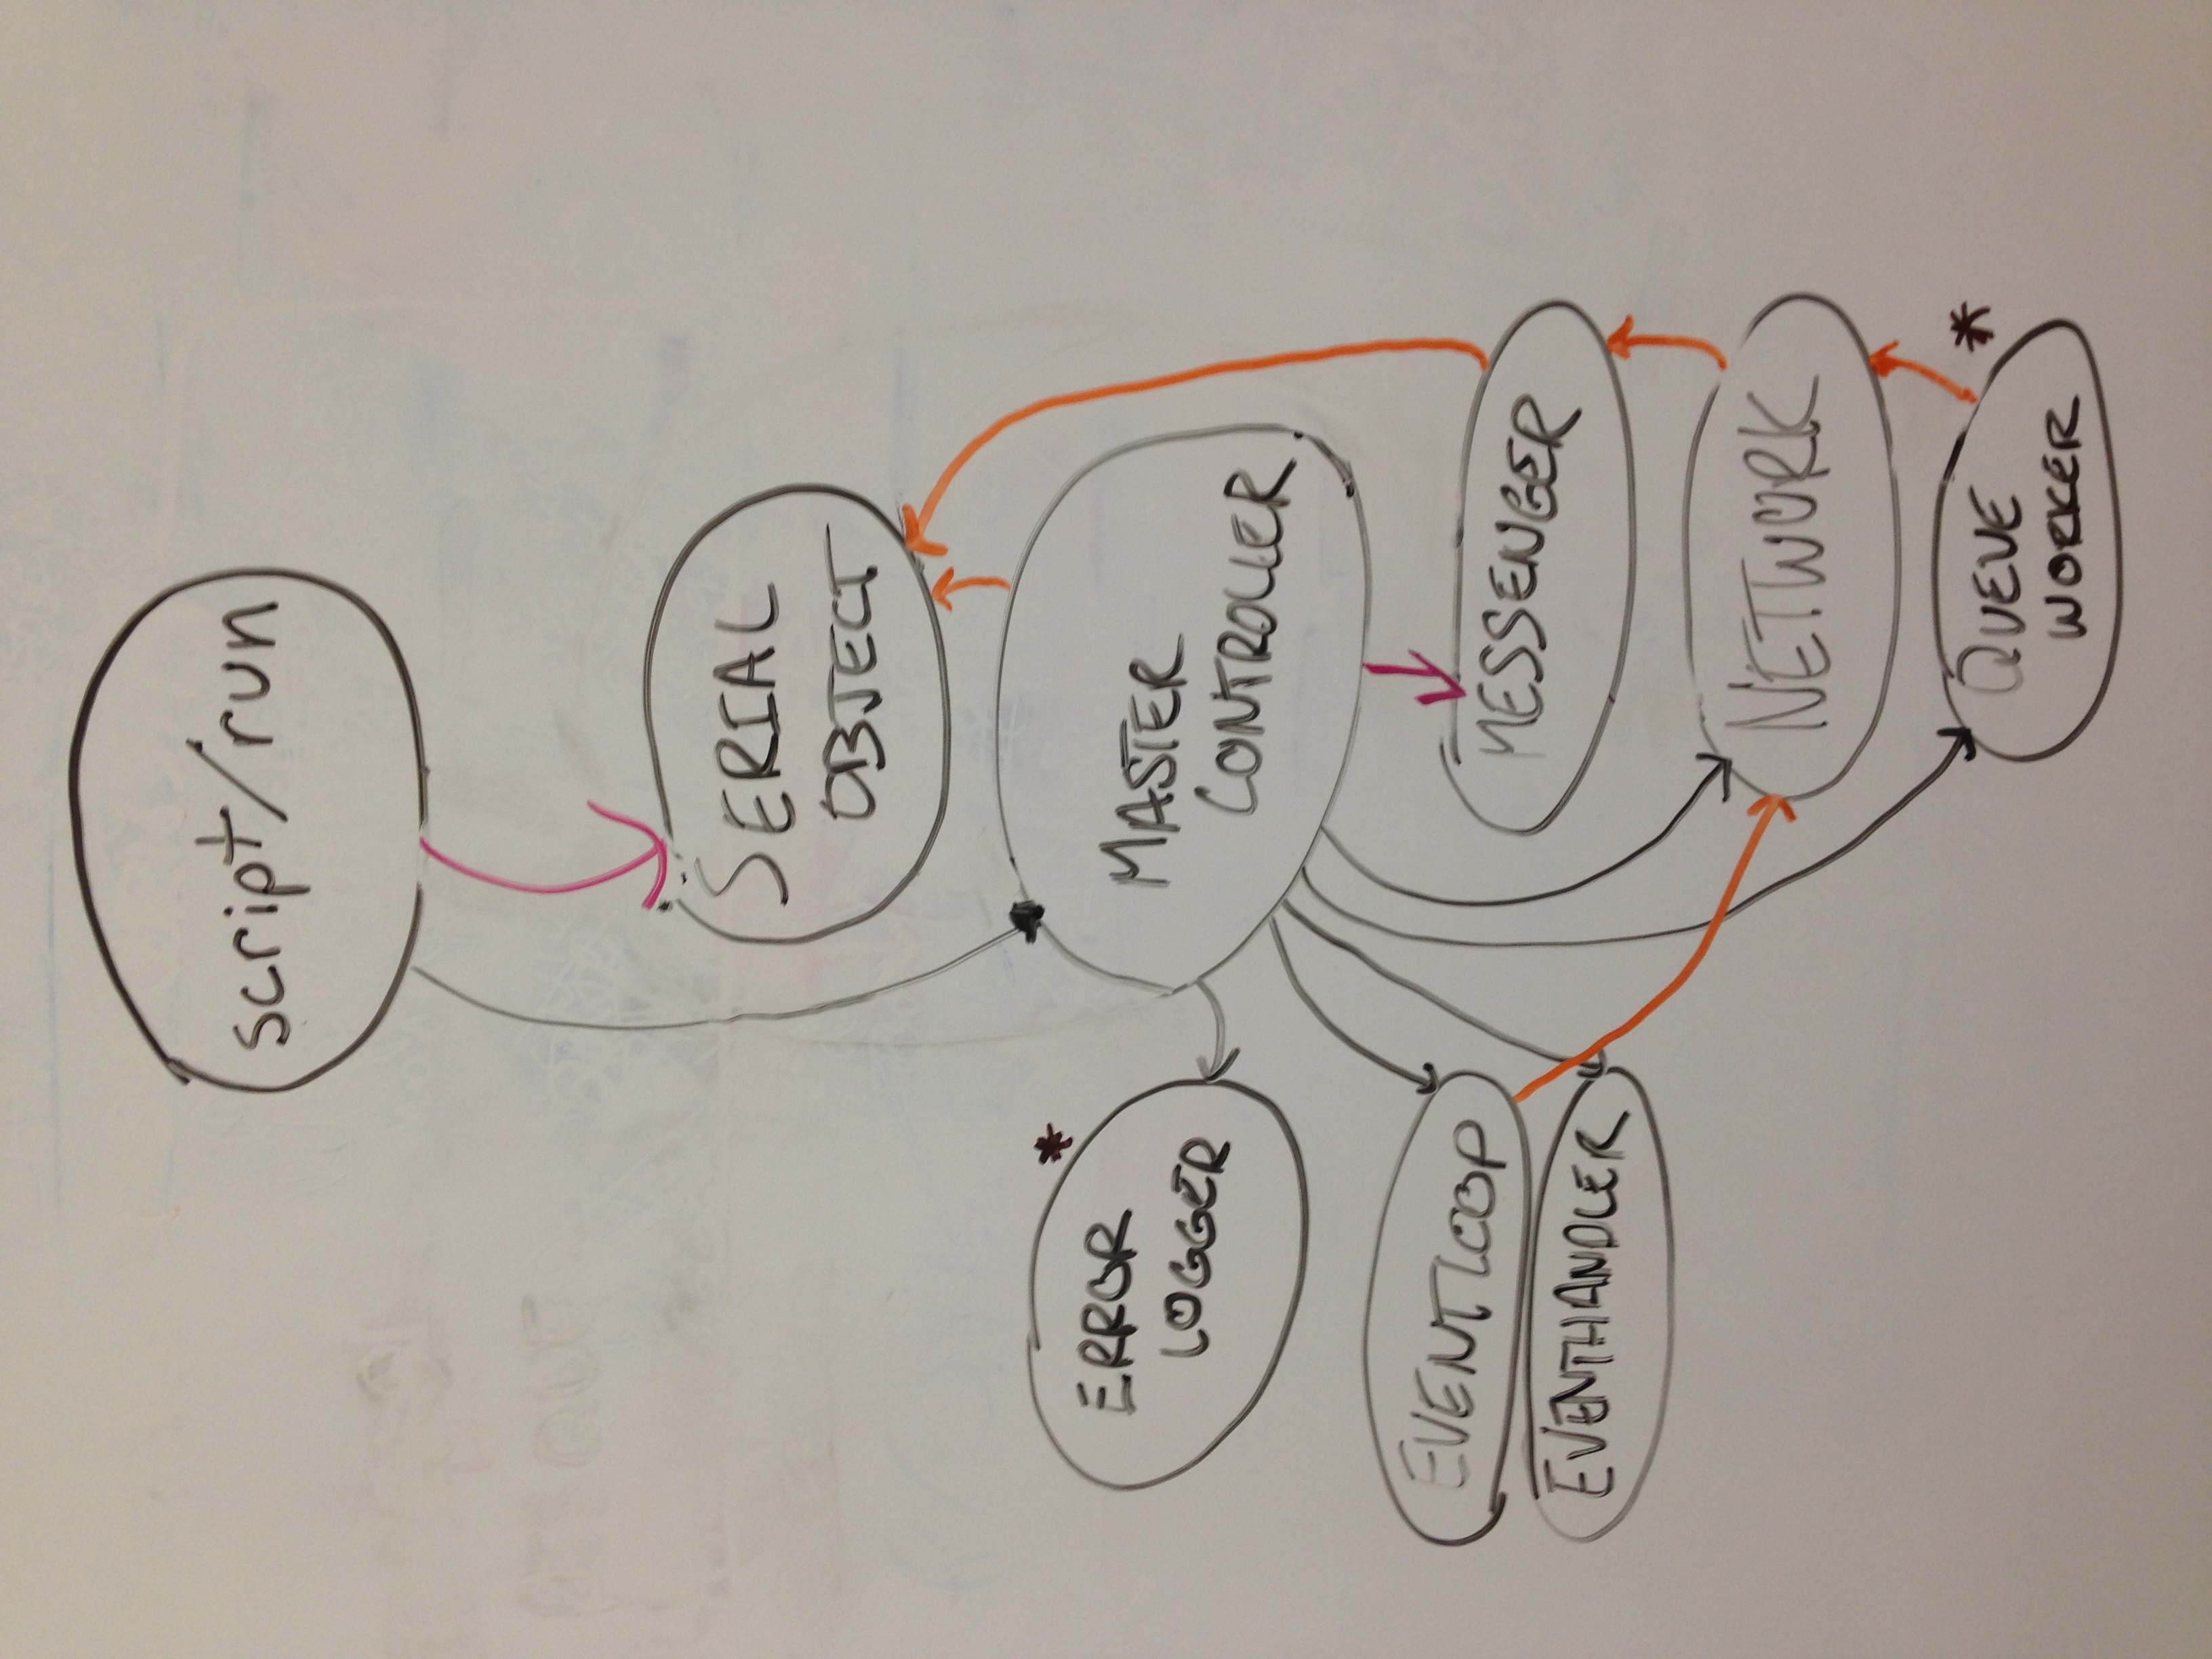 script/run
SERIAL
OBJECT
ERROR *
LOGGER
MASTER
CONTROLLER
EVENTLOOP
MESSENGER
EVENTHANDLER
NETWORK
QUEUE *
WORKER